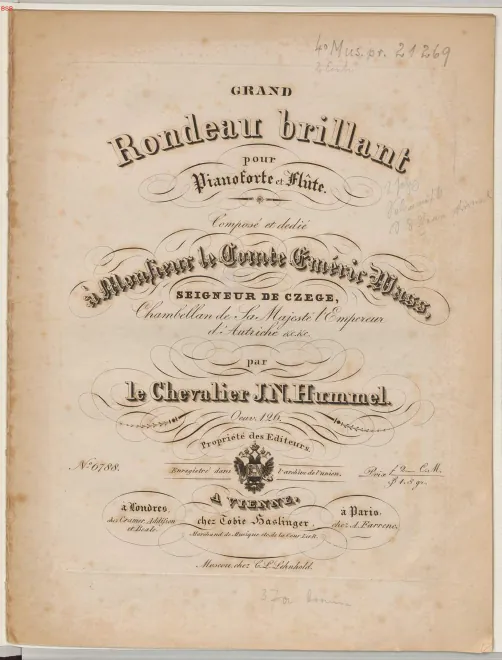 BSB
4° Mus. pr. 21269
GRAND
Rondeau brillant
pour
Pianoforte et Flûte.
Composé et dedié
à Monsieur le Comte Eméric Wass,
SEIGNEUR DE CZEGE,
Chambellan de Sa Majesté l'Empereur
d'Autriche &c.&c.
par
le Chevalier J.N. Hummel.
Oeuv. 126.
Propriété des Editeurs.
No. 6788.
Enregistré dans l'archive de l'union.
Prix
A VIENNE,
chez Tobie Haslinger,
Marchand de Musique
à Londres,
chez Cramer, Addison
et Beale.
à Paris,
chez A. Farrenc.
Moscou, chez C. L. Lehnhold.